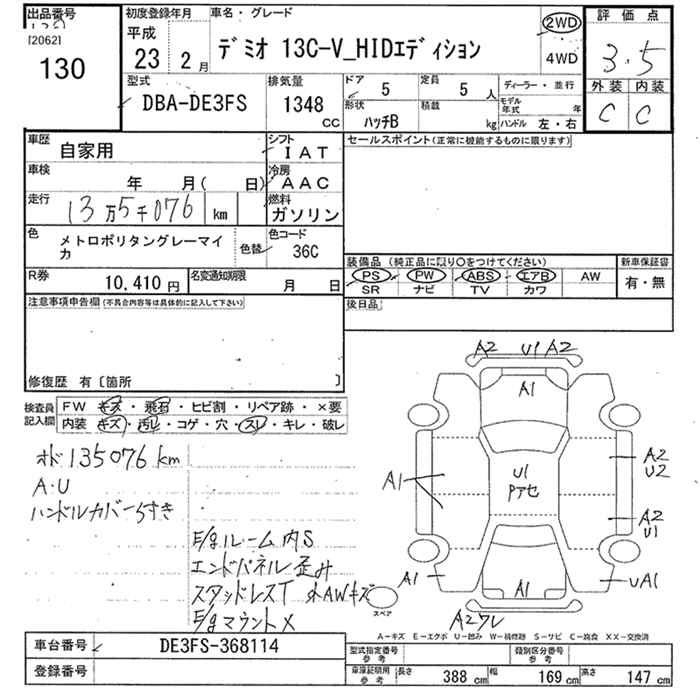 出品番号
[2062]
130
初度登録年月
平成
23年 2月
車名・グレード
デミオ 13C-V_HIDエディション
2WD
4WD
評価点
3.5
外装 内装
C C
型式
DBA-DE3FS
排気量
1348
CC
ドア 5
定員 5人
形状 ハッチB
積載 kg
ディーラー・並行
モデル年式 年
ハンドル 左・右
車歴
自家用
シフト
IAT
車検
年 月( 日)
冷房
AAC
走行
13万5千076 km
燃料
ガソリン
色
メトロポリタングレーマイカ
色替
色コード
36C
R券
10,410円
名変通知期限
月 日
セールスポイント(正常に機能するものに限ります)
装備品(純正品に限り〇をつけてください)
PS PW ABS エアB AW
SR ナビ TV カワ
新車保証書
有・無
後日品
注意事項申告欄(不具合内容等は具体的に記入して下さい)
修復歴 有〔箇所 〕
検査員記入欄
FW キズ・飛石・ヒビ割・リペア跡・×要
内装 キズ・汚レ・コゲ・穴・スレ・キレ・破レ
オド 135076km
A・U
ハンドルカバーうすき
E/gルーム内S
エンドパネル歪み
スタッドレスT 外AWキズ
E/gマウントX
A2 U1 A2
A1
A1
U1
Pアセ
A2
U2
A2
U1
A1
A1
UA1
A2ワレ
スペア
A-キズ E-エクボ U-凹み W-補修跡 S-サビ C-腐食 XX-交換済
車台番号
DE3FS-368114
登録番号
型式指定番号
参考
類別区分番号
参考
車庫証明用
参考
長さ 388 cm
幅 169 cm
高さ 147 cm